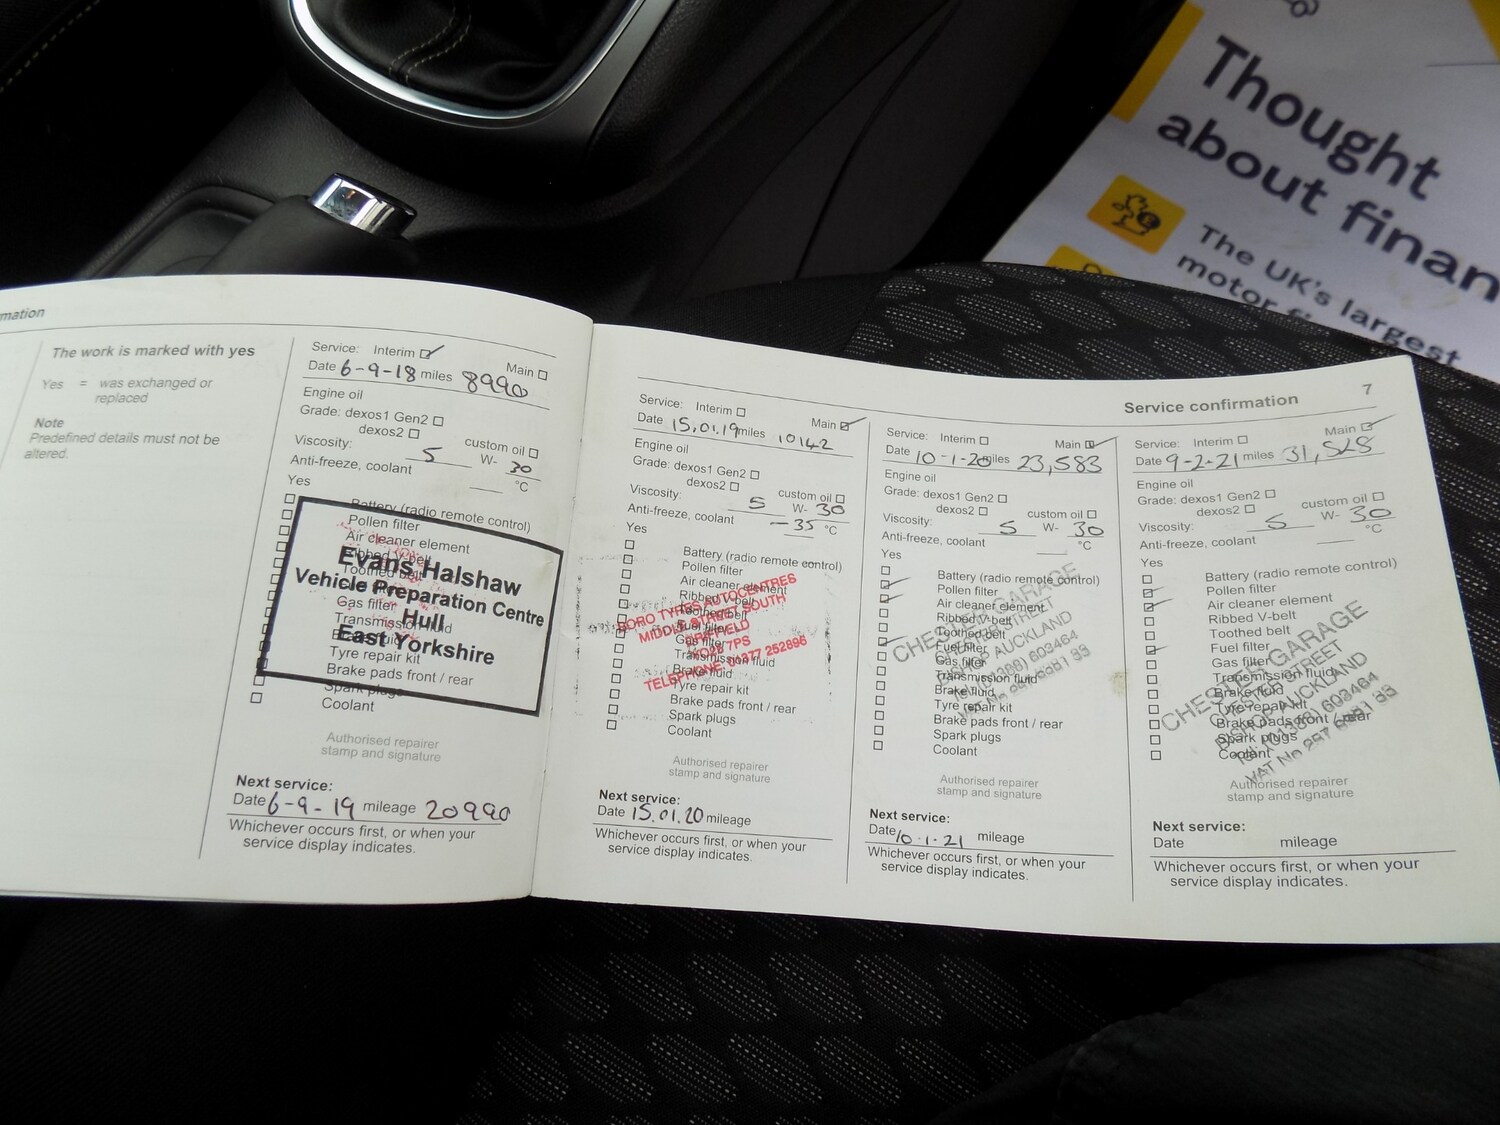 Thought
about finan
The UK's largest
motor fi
mation
The work is marked with yes
Yes = was exchanged or
replaced
Note
Predefined details must not be
altered.
Service: Interim ☑ Main ☐
Date 6-9-18 miles 8990
Engine oil
Grade: dexos1 Gen2 ☐
dexos2 ☐ custom oil ☐
Viscosity: 5 W- 30
Anti-freeze, coolant °C
Yes
Battery (radio remote control)
Pollen filter
Air cleaner element
Ribbed V-belt
Toothed belt
Gas filter
Transmission fluid
Tyre repair kit
Brake pads front / rear
Spark plugs
Coolant
Evans Halshaw
Vehicle Preparation Centre
Hull
East Yorkshire
Authorised repairer
stamp and signature
Next service:
Date 6-9-19 mileage 20990
Whichever occurs first, or when your
service display indicates.
Service: Interim ☐ Main ☑
Date 15.01.19 miles 10142
Engine oil
Grade: dexos1 Gen2 ☐
dexos2 ☐ custom oil ☐
Viscosity: 5 W- 30
Anti-freeze, coolant -35 °C
Yes
Battery (radio remote control)
Pollen filter
Air cleaner element
Ribbed V-belt
Toothed belt
Fuel filter
Gas filter
Transmission fluid
Brake fluid
Tyre repair kit
Brake pads front / rear
Spark plugs
Coolant
BORO TYRES AUTOCENTRES
MIDDLE STREET SOUTH
DRIFFIELD
YO25 7PS
TELEPHONE: 01377 252896
Authorised repairer
stamp and signature
Next service:
Date 15.01.20 mileage
Whichever occurs first, or when your
service display indicates.
Service confirmation 7
Service: Interim ☐ Main ☑
Date 10-1-20 miles 23,583
Engine oil
Grade: dexos1 Gen2 ☐
dexos2 ☐ custom oil ☐
Viscosity: 5 W- 30
Anti-freeze, coolant °C
Yes
Battery (radio remote control)
Pollen filter
Air cleaner element
Ribbed V-belt
Toothed belt
Fuel filter
Gas filter
Transmission fluid
Brake fluid
Tyre repair kit
Brake pads front / rear
Spark plugs
Coolant
CHESTER GARAGE
CHESTER STREET
BISHOP AUCKLAND
Tel: (01388) 603464
VAT No
Authorised repairer
stamp and signature
Next service:
Date 10.1.21 mileage
Whichever occurs first, or when your
service display indicates.
Service: Interim ☐ Main ☑
Date 9-2-21 miles 31,528
Engine oil
Grade: dexos1 Gen2 ☐
dexos2 ☐ custom oil ☐
Viscosity: 5 W- 30
Anti-freeze, coolant °C
Yes
Battery (radio remote control)
Pollen filter
Air cleaner element
Ribbed V-belt
Toothed belt
Fuel filter
Gas filter
Transmission fluid
Brake fluid
Tyre repair kit
Brake pads front / rear
Spark plugs
Coolant
CHESTER GARAGE
CHESTER STREET
BISHOP AUCKLAND
Tel: (01388) 603464
VAT No
Authorised repairer
stamp and signature
Next service:
Date mileage
Whichever occurs first, or when your
service display indicates.